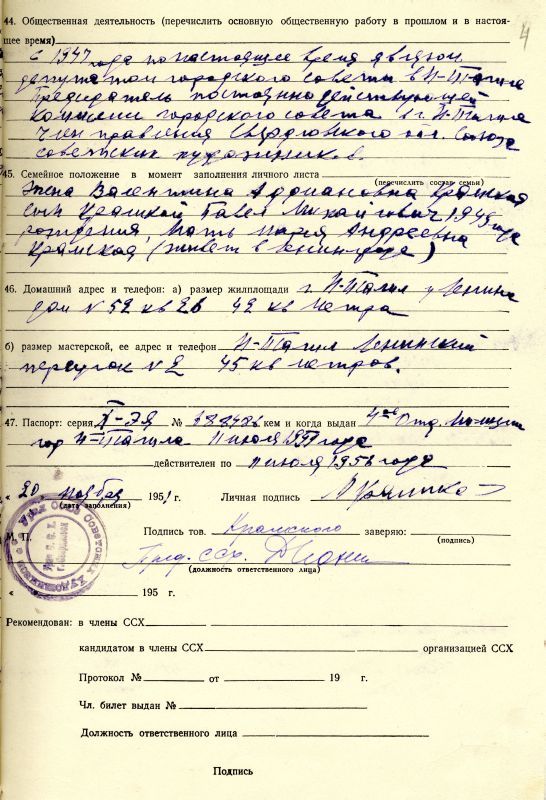 4
44. Общественная деятельность (перечислить основную общественную работу в прошлом и в настоя-
щее время) С 1947 года по настоящее время являюсь
депутатом городского совета в Н-Тагиле
Председатель постоянно действующей
комиссии городского совета г. Н-Тагила
Член правления Свердловского обл. Союза
советских художников.
45. Семейное положение в момент заполнения личного листа
(перечислить состав семьи)
Жена Валентина Адриановна Крамская
сын Крамской Павел Михайлович 1949 года
рождения, Мать Мария Андреевна
Крамская (живет в Ленинграде)
46. Домашний адрес и телефон: а) размер жилплощади г. Н-Тагил у Ленина
дом № 52 кв 26 42 кв метра
б) размер мастерской, ее адрес и телефон Н-Тагил Ленинский
переулок № 2 45 кв метров.
47. Паспорт: серия X-ЭЯ № кем и когда выдан 4ое Отд. Милиции
гор Н-Тагила 11 июля 1951 года
действителен по 11 июля 1956 года
" 20 ноября 1951 г. Личная подпись
(дата заполнения)
М. П. Подпись тов. Крамского заверяю:
(подпись)
Пред. ССХ.
(должность ответственного лица)
" 195 г.
Рекомендован: в члены ССХ
кандидатом в члены ССХ организацией ССХ
Протокол № от 19 г.
Чл. билет выдан №
Должность ответственного лица
Подпись